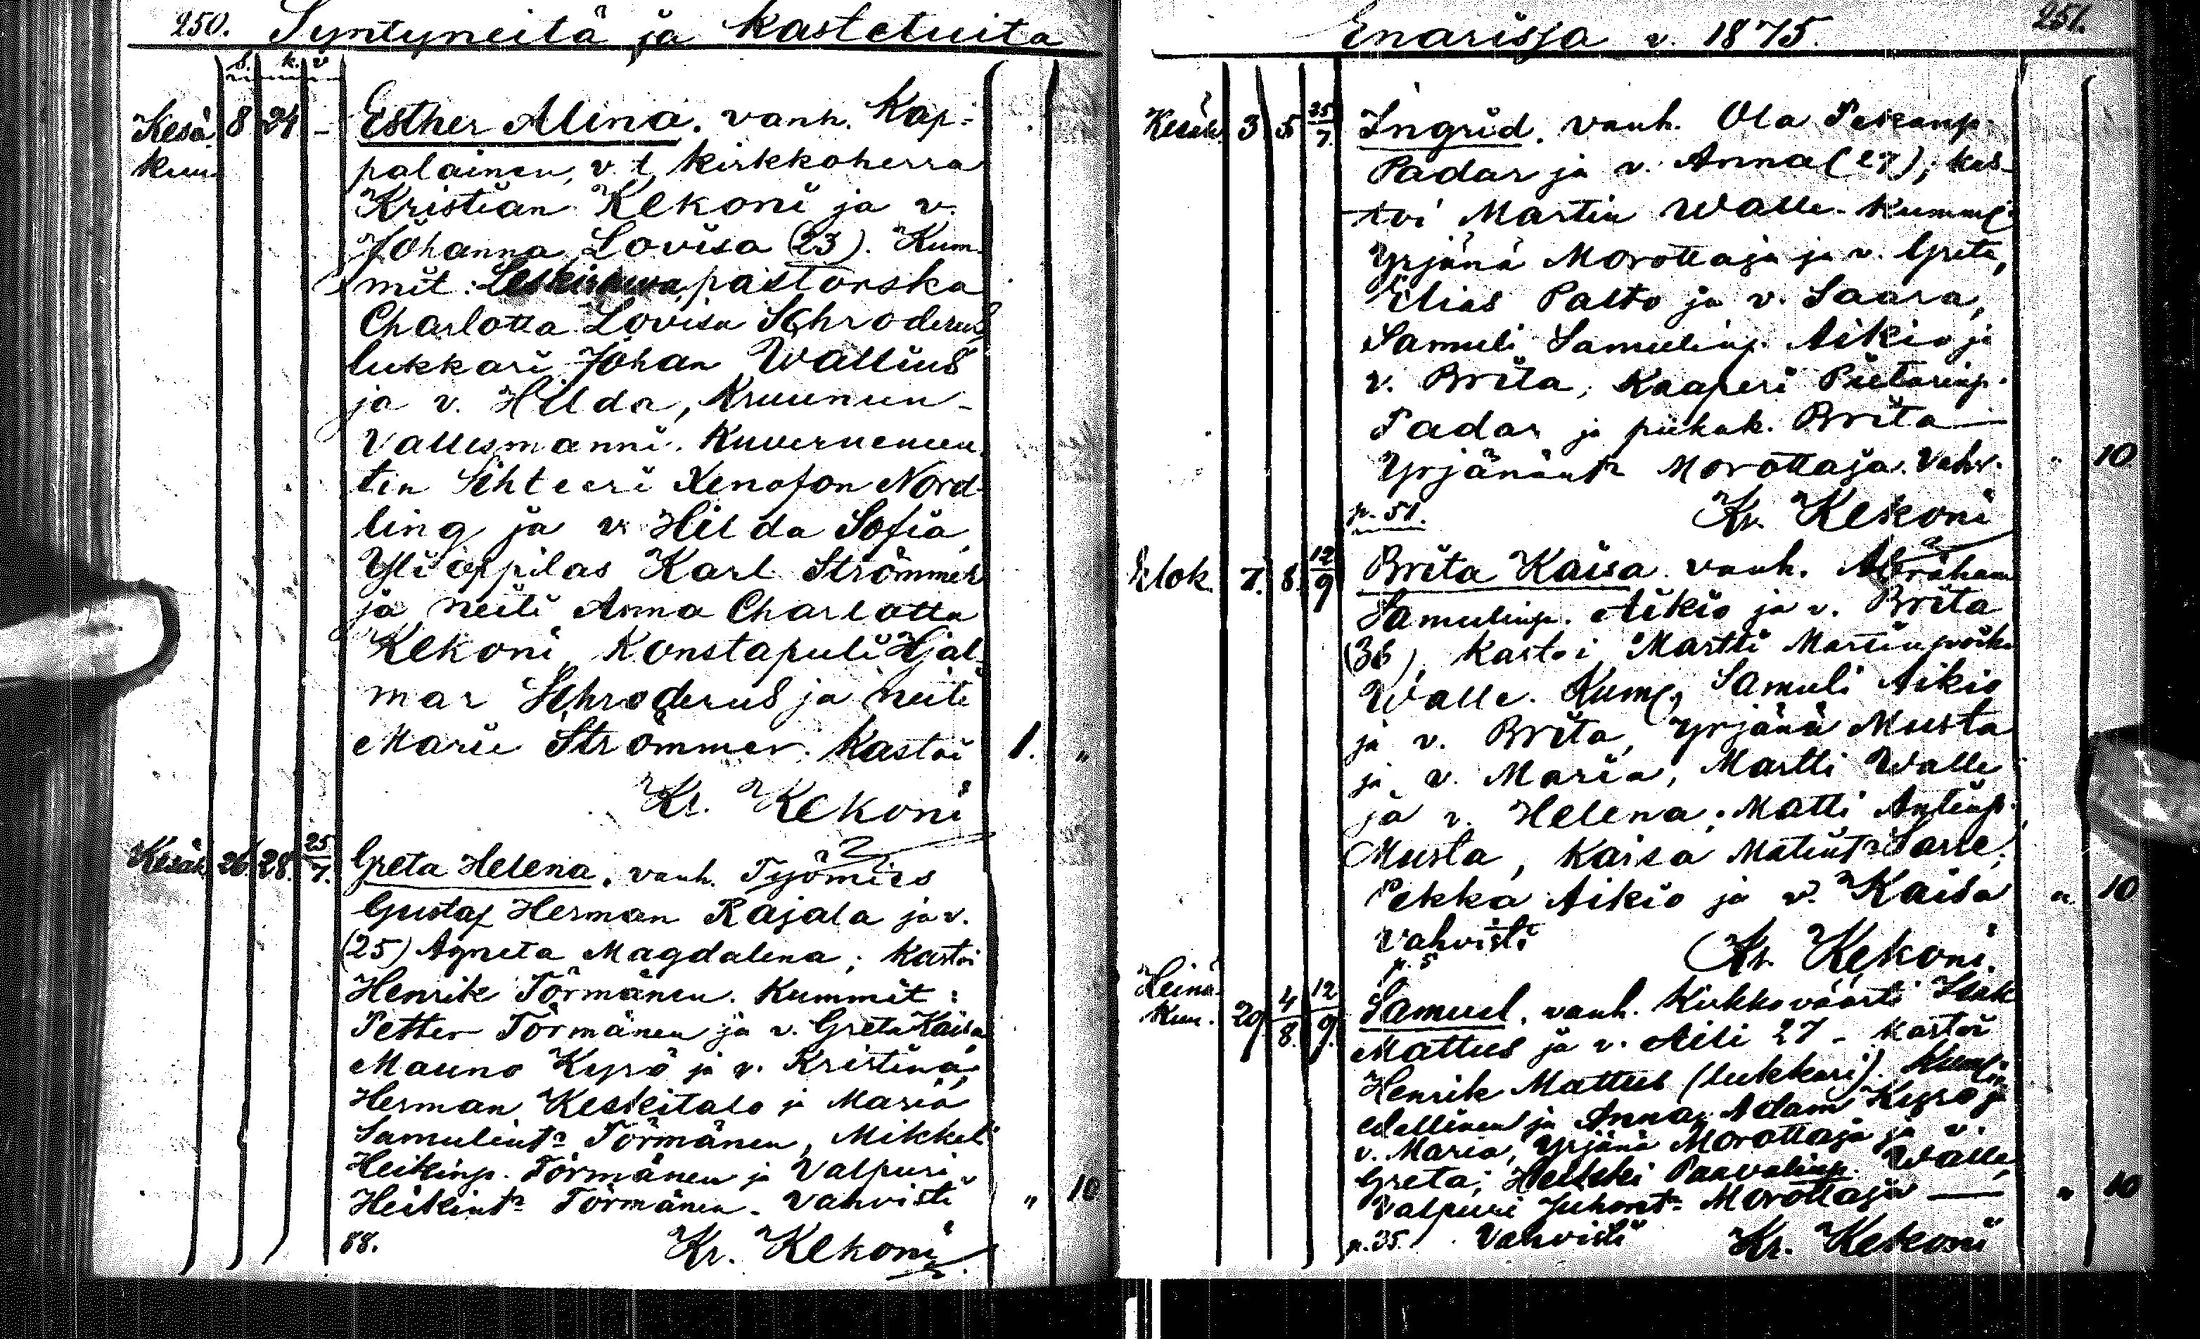 250. Syntyneitä ja kastetuita
s. k. v
Kesä 8 24 – Esther Alina. vanh. Kap-
kuu palainen, v. t. kirkkoherra
Kristian Kekoni ja v.
Johanna Lovisa (23). Kum-
mit: pastorska
Charlotta Lovisa Schroderus
lukkari Johan Wallius
ja v. Hilda, Kruunun-
Vallesmanni. Kuvernemen
tin Sihteeri Xenofon Nord-
ling ja v. Hilda Sofia,
Ylioppilas Karl Strömmer
ja neiti Anna Charlotta
Kekoni, Konstapuli Hjal-
mar Schroderus ja neiti
Marie Strömmer. Kastoi 1. "
Kr. Kekoni
Kesäk 26 28. 25/7. Greta Helena. vanh. Työmies
Gustaf Herman Rajala ja v.
(25) Agneta Magdalena; Kastoi
Henrik Törmänen. Kummit:
Petter Törmänen ja v. Greta Kaisa
Mauno Kyrö ja v. Kristina,
Herman Keskitalo ja Maria
Samulint? Törmänen, Mikkel
Heikinp. Törmänen ja Valpuri
Heikint? Törmänen. Vahvisti " 10
88. Kr. Kekoni
Enarissa v. 1875. 251.
Kesäk. 3 5 25/7 Ingrid. vanh. Ola Pekanp.
Padar ja v. Anna (27); kas-
toi Martin Walle. Kumme
Yrjänä Morottaja ja v. Greta,
Elias Palto ja v. Saara,
Samuli Samulinp. Aikio ja
v. Brita, Kaaperi Pietarinp.
Padar ja piikak. Brita —
Yrjänänt? Morottaja. Vahv. " 10
p. 51. Kr. Kekoni
Elok. 7. 8. 12/9 Brita Kaisa. vanh. Abraham
Samulinp. Aikio ja v. Brita
(36) Kastoi Martti Martinpoika
Walle. Kum. Samuli Aikio
ja v. Brita, Yrjänä Musta
ja v. Maria, Martti Walle
ja v. Helena; Matti Antinp.
Musta, Kaisa Matint? Sarre;
Pekka Aikio ja v. Kaisa " 10
Vahvisti Kr. Kekoni
p. 5
Heinä Samuel. vanh. Kirkkoväärti Isak
kuu. 29 4/8. 12/9. Mattus ja v. Aili 27 – kastoi
Henrik Mattus (lukkari).
ja Anna, Adam Kyrö ja
v. Maria, Yrjänä Morottaja ja v.
Greta; Heikki Paavalinp. Walle,
Valpuri Juhont? Morottaja — " 10
p. 35. Vahvisti Kr. Kekoni